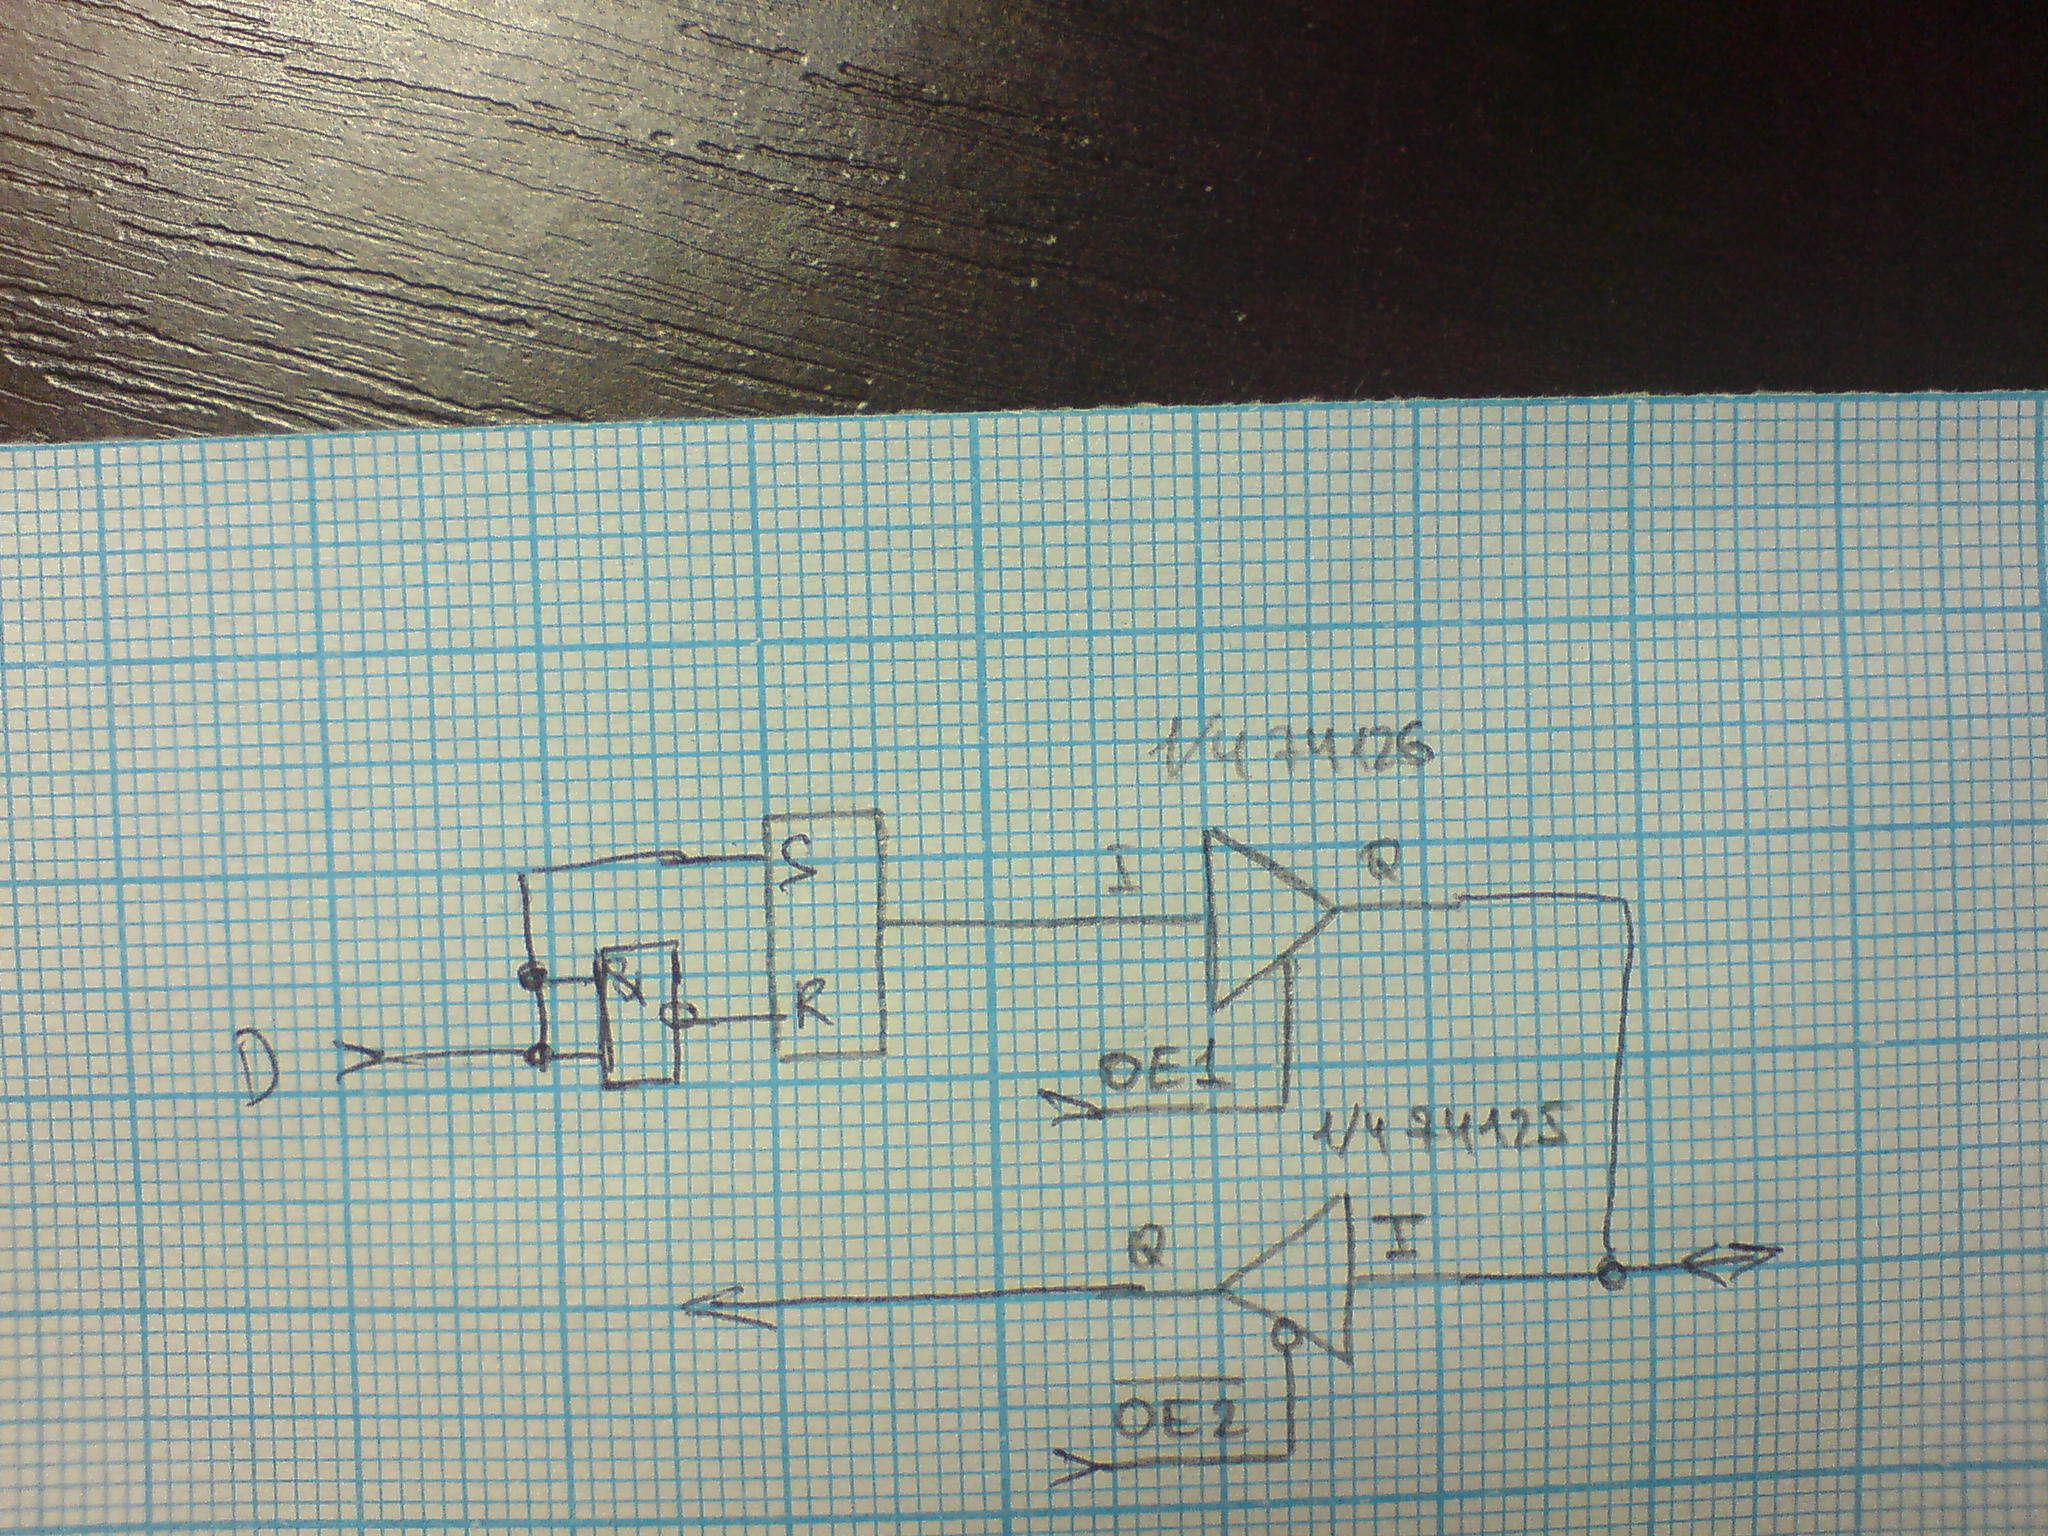 1/4 74126
S
I
Q
&
R
D
OE1
1/4 74125
Q
I
OE2